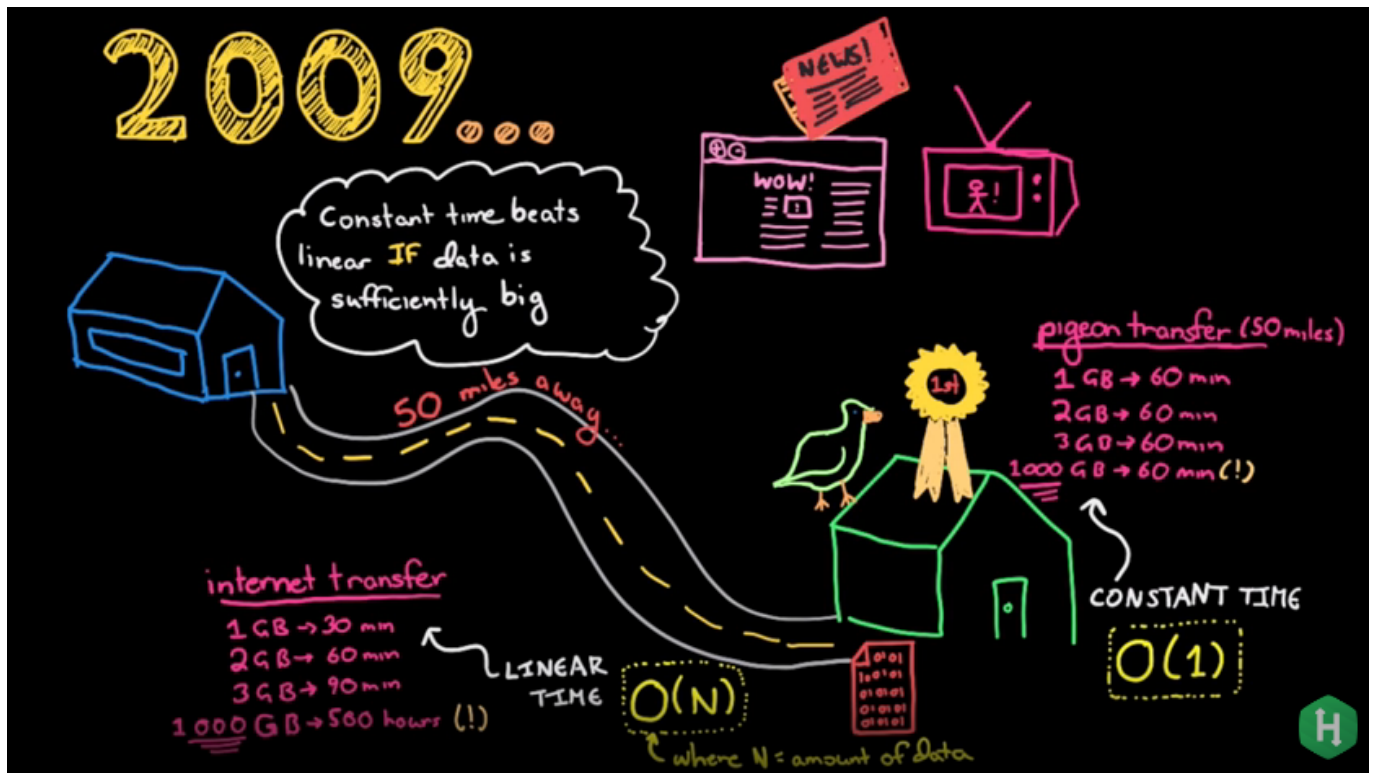 2009...
NEWS!
WOW!
!
!
Constant time beats
linear IF data is
sufficiently big
50 miles away...
pigeon transfer (50 miles)
1 GB → 60 min
2 GB → 60 min
3 GB → 60 min
1000 GB → 60 min (!)
1st
CONSTANT TIME
O(1)
internet transfer
1 GB → 30 min
2 GB → 60 min
3 GB → 90 min
1000 GB → 500 hours (!)
LINEAR
TIME
O(N)
where N = amount of data
0101
100101
010101
01 0101
0101
H